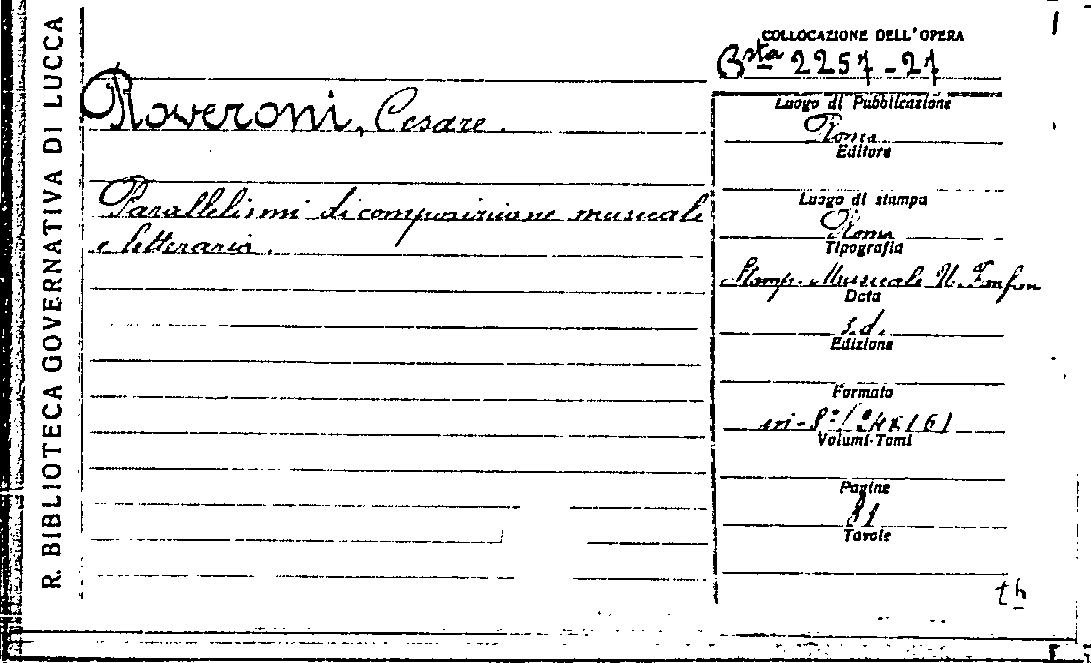 R. BIBLIOTECA GOVERNATIVA DI LUCCA
COLLOCAZIONE DELL'OPERA
Bsta 2257-27
Roveroni, Cesare.
Parallelismi di composizione musicale
e letteraria.
Luogo di Pubblicazione
Roma
Editore
Luogo di stampa
Roma
Tipografia
Stamp. Musicale U.
Data
s.d.
Edizione
Formato
in-8º (24x16)
Volumi-Tomi
Pagine
Tavole